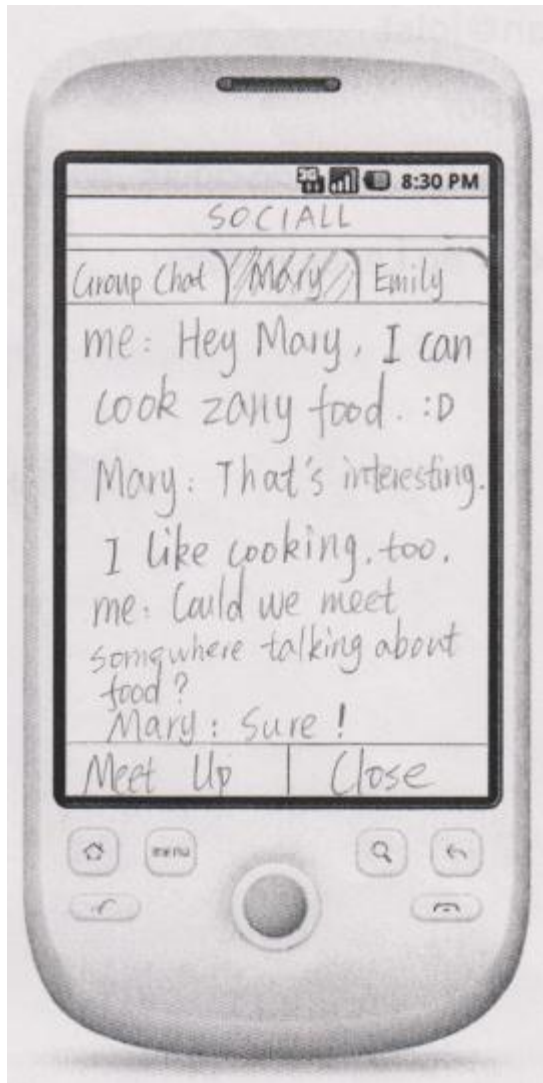 3G 8:30 PM
SOCIALL
Group Chat Mary Emily
me: Hey Mary, I can
cook zany food. :D
Mary: That's interesting.
I like cooking, too.
me: Could we meet
somewhere talking about
food?
Mary: Sure!
Meet Up Close
menu